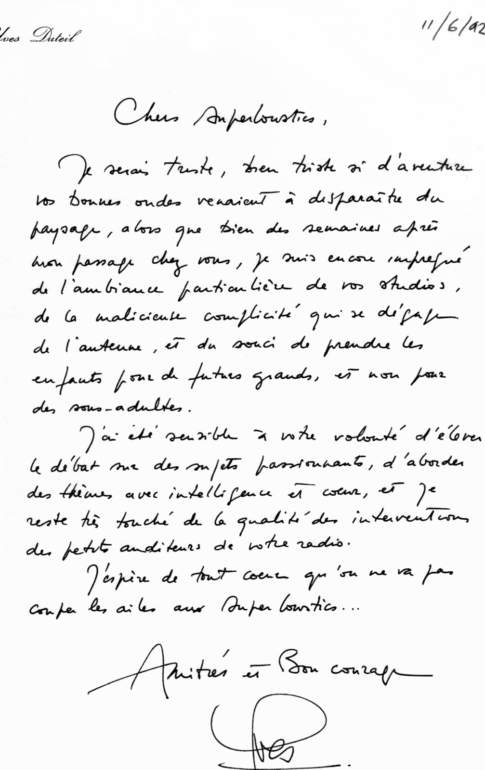 Yves Duteil
11/6/92
Chers Superloustics,
Je serais triste, bien triste si d'aventure
vos bonnes ondes venaient à disparaître du
paysage, alors que bien des semaines après
mon passage chez vous, je suis encore imprégné
de l'ambiance particulière de vos studios,
de la malicieuse complicité qui se dégage
de l'antenne, et du souci de prendre les
enfants pour de futurs grands, et non pour
des sous-adultes.
J'ai été sensible à votre volonté d'élever
le débat sur des sujets passionnants, d'aborder
des thèmes avec intelligence et coeur, et je
reste très touché de la qualité des interventions
des petits auditeurs de votre radio.
J'espère de tout coeur qu'on ne va pas
couper les ailes aux Superloustics...
Amitiés et Bon courage
Yves